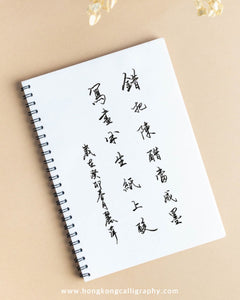 錯把陳醋當成墨
寫盡半生紙上酸
歲在癸卯
www.hongkongcalligraphy.com